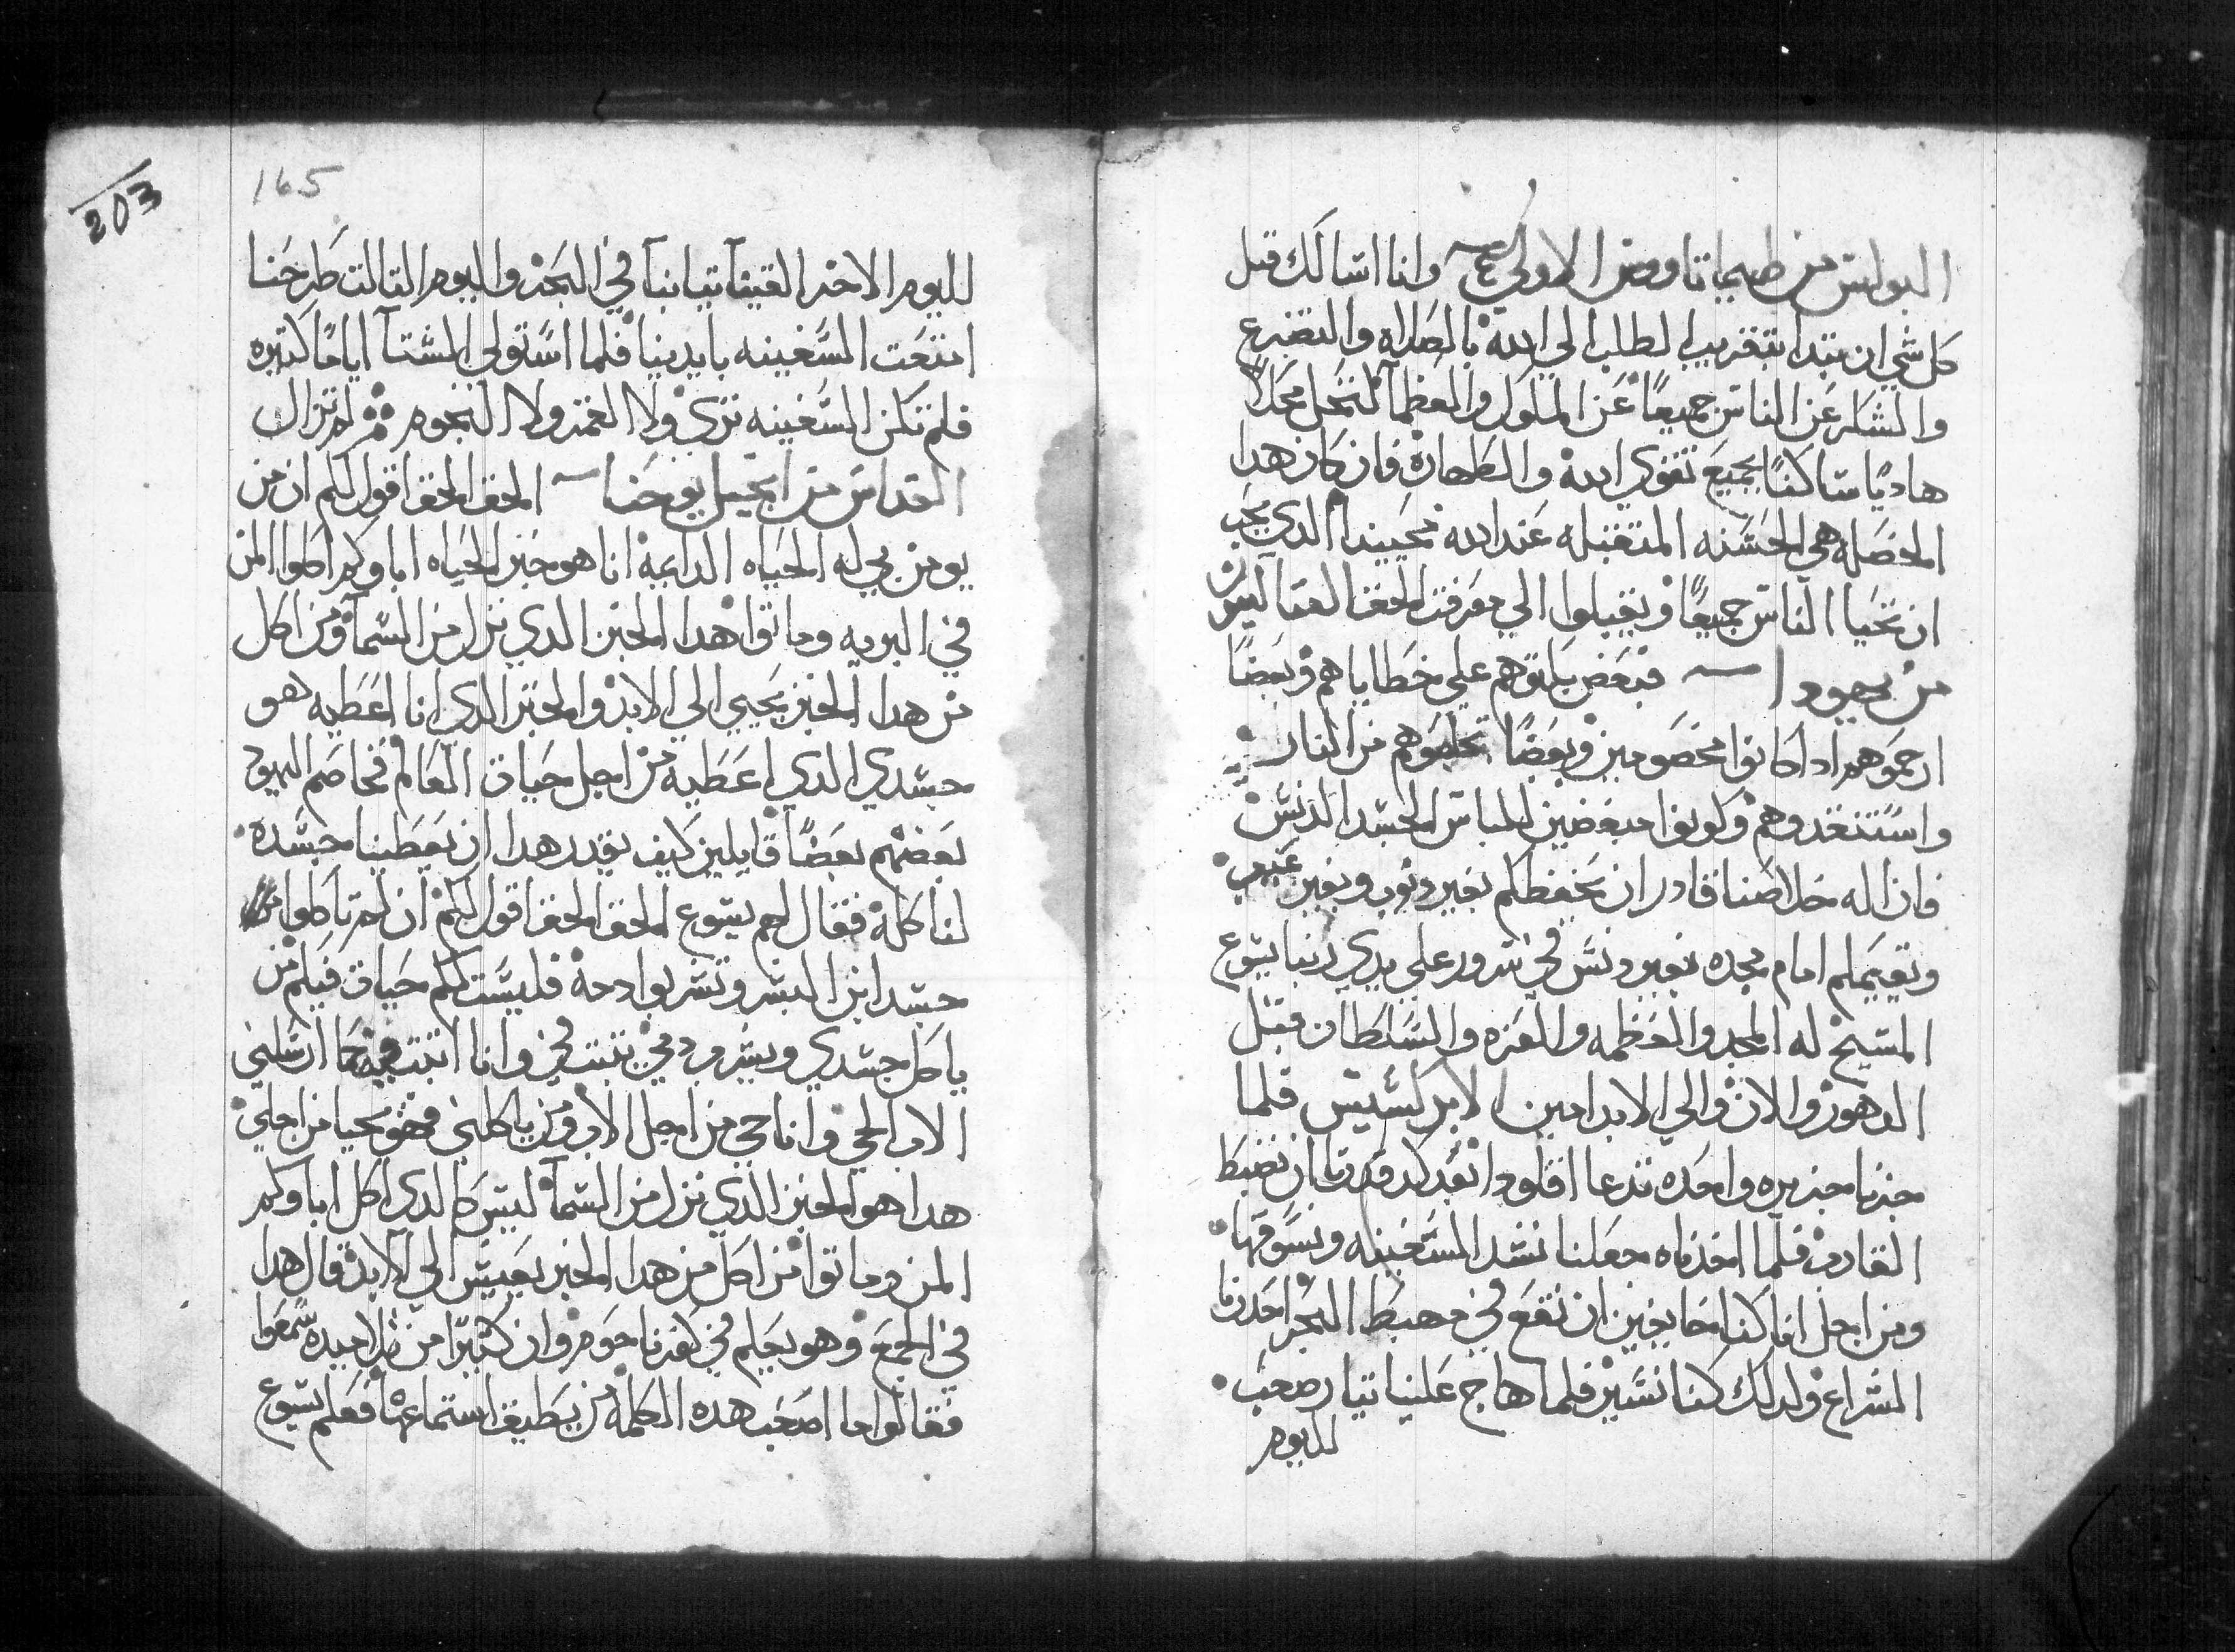 البولس من طيماتاوس الاولي وانا اسالك قبل
كل شي ان تبدا بتقريب الطلب الي الله بالصلاه والتضرع
والشكر عن الناس جميعًا عن الملوك والعظمآ لنحل محلاً
هاديًا ساكنًا بجميع تقوي الله والطهارة فان كان هدا
الخصله هي الحسنه المتقبله عند الله محيينا الدي يحب
ان تحيا الناس جميعًا ويقبلوا الي معرفت الحق القتاليقون
من يهودا فبعض بكتوهم علي خطاياهم وبعضًا
ارحموهم ادا كانوا مخصومين وبعضًا خلصوهم من النار
واستنقدوهم وكونوا مبغضين للباس الجسد الدنس
فان الله خلاصنا قادر ان يحفظكم بغير دنوب وبغير عيب
ويقيمكم امام مجده بغير دنس في سرور علي يدي ربنا يسوع
المسيح له المجد والعظمه والعزه والسلطان قبل
الدهور والان والي الابد امين الابركسيس فلما
جزنا جزيره واحده تدعا اقلودا بعد كد قدرنا ان نضبط
القارب فلما اخدناه جعلنا نشد السفينه ونسوقها
ومن اجل انا كنا خايفين ان نقع في مهبط البحر احدرنا
الشراع ولدلك كنا نسير فلما هاج علينا تيار صعب
لليوم
203
165
لليوم الاخر القينآ تيابنآ في البحر واليوم التالت طرحنا
امتعت السفينه بايدينا فلما استولي الشتآ ايامًا كتيره
فلم تكن السفينه تري ولا القمر ولا النجوم ثم لم تزال
القداس من انجيل يوحنا الحق الحق اقول لكم ان من
يومن بي له الحياه الدايمة انا هو خبز الحياه اباوكم اكلوا المن
في البريه وماتوا هدا الخبز الدي نزل من السمآ ومن اكل
من هدا الخبز يحيي الي الابد والخبز الدي انا اعطيه هو
جسدي الدي اعطيه من اجل حياة العالم فخاصم اليهود
بعضهم بعضًا قايلين كيف يقدر هدا ان يعطينا جسده
لناكله فقال لهم يسوع الحق الحق اقول لكم ان لم تاكلوا
جسد ابن البشر وتشربوا دمه فليست لكم حياة فيكم من
ياكل جسدي ويشرب دمي يتبت في وانا اتبت فيه كما ارسلني
الاب الحي وانا حي من اجل الاب ومن ياكلني فهو يحيا من اجلي
هدا هو الخبز الدي نزل من السمآ ليس كالدي اكل اباوكم
المن وماتوا من اكل من هدا الخبز يعيش الي الابد قال هدا
في الجمع وهو يعلم في كفرناحوم وان كثيرًا من تلاميده سمعوا
فقالوا ما اصعب هده الكلمة من يطيق استماعها فعلم يسوع